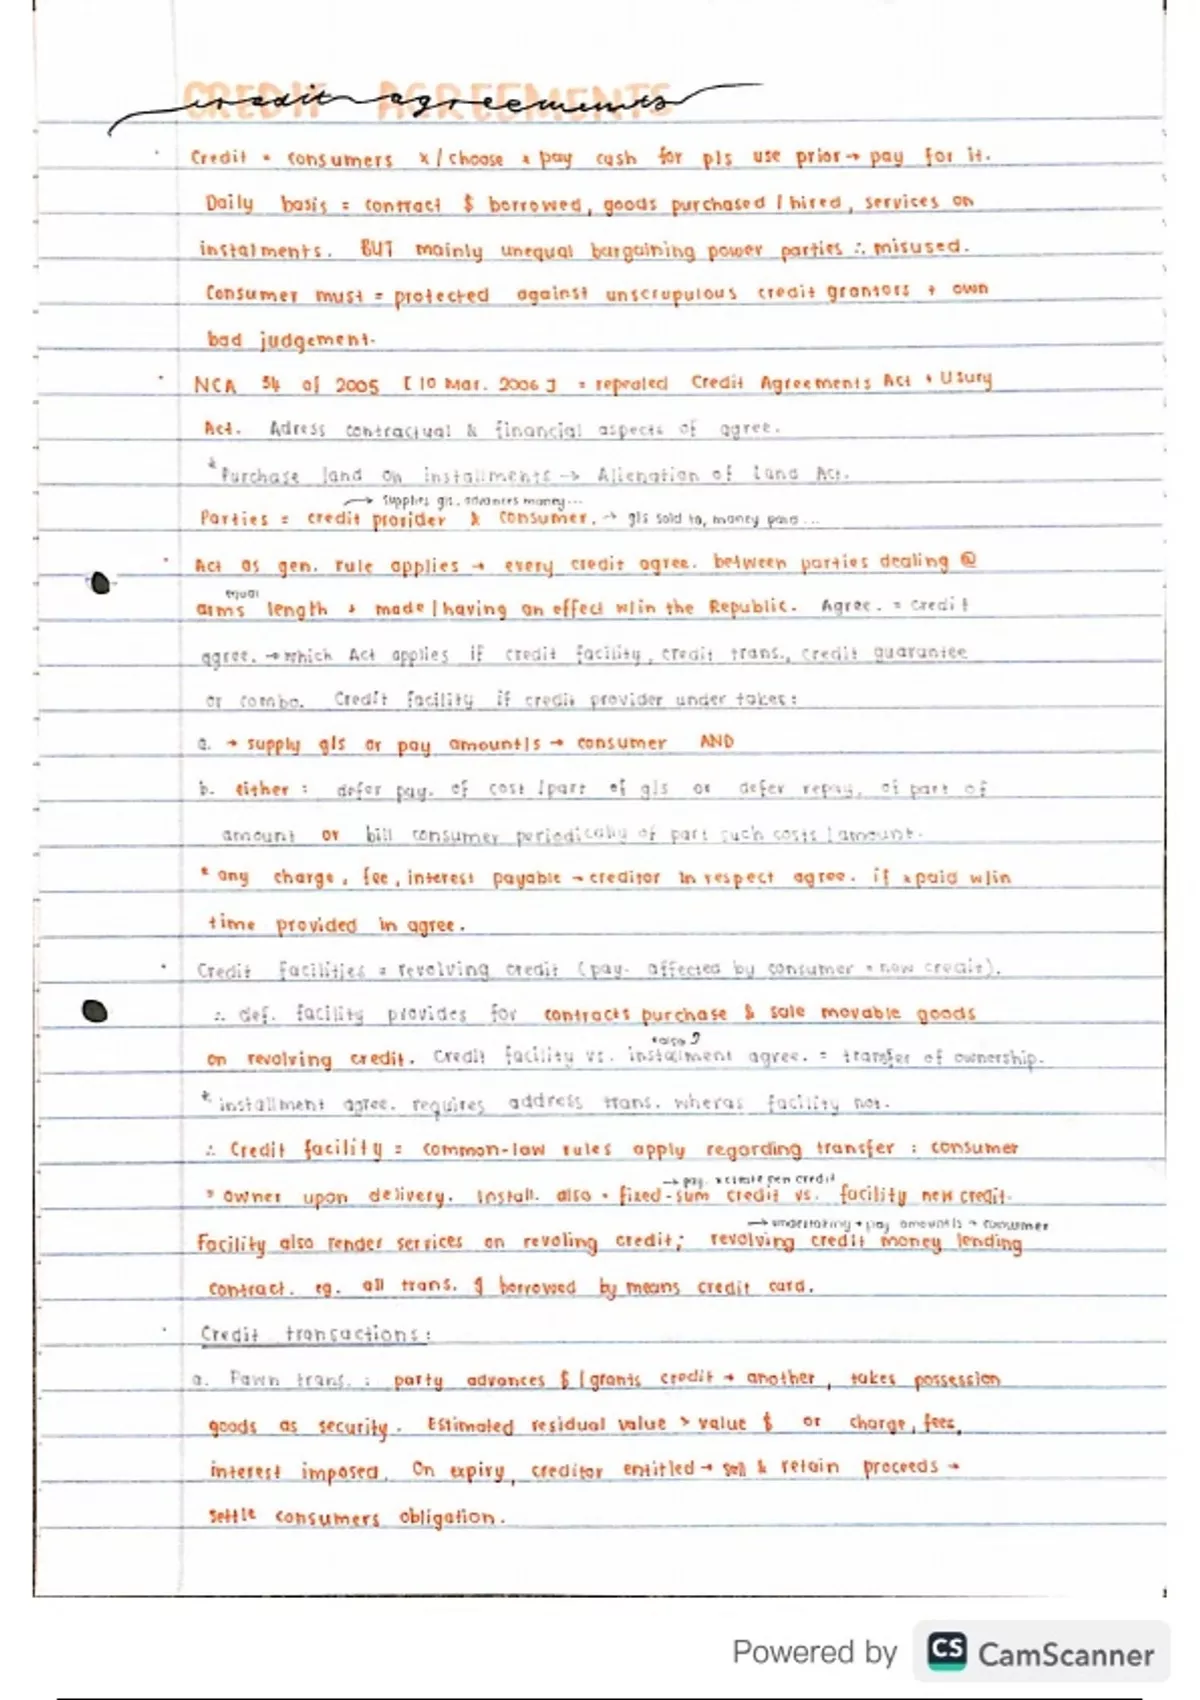 CREDIT AGREEMENTS
credit agreements
Credit = consumers x / choose x pay cash for pls use prior → pay for it.
Daily basis = contract $ borrowed, goods purchased / hired, services on
instalments. BUT mainly unequal bargaining power parties ∴ misused.
Consumer must = protected against unscrupulous credit grantors + own
bad judgement.
NCA 34 of 2005 [10 Mar. 2006] = repealed Credit Agreements Act + Usury
Act. Adress contractual & financial aspects of agree.
* Purchase land on installments → Alienation of Land Act.
→ supplies g/s, advances money...
Parties = credit provider & consumer. → g/s sold to, money paid ...
Act as gen. rule applies → every credit agree. between parties dealing @
equal
arms length & made / having an effect w/in the Republic. Agree. = credit
agree. → which Act applies if credit facility, credit trans., credit guarantee
or combo. Credit facility if credit provider under takes:
a. → supply g/s or pay amount/s → consumer AND
b. either : defer pay. of cost / part of g/s or defer repay. of part of
amount or bill consumer periodically of part such costs / amount.
* any charge, fee, interest payable → creditor in respect agree. if x paid w/in
time provided in agree.
Credit facilities = revolving credit (pay. affected by consumer = new credit).
∴ def. facility provides for contracts purchase & sale movable goods
on revolving credit. Credit facility vs. instalment agree. = transfer of ownership.
* installment agree. requires address trans. wheras facility not.
∴ Credit facility = common-law rules apply regarding transfer : consumer
→ pay. x create new credit
= owner upon delivery. Install. also = fixed-sum credit vs. facility new credit.
→ undertaking + pay amount/s → consumer
Facility also render services on revoling credit; revolving credit money lending
contract. eg. all trans. $ borrowed by means credit card.
Credit transactions:
a. Pawn trans. : party advances $ / grants credit → another, takes possession
goods as security. Estimated residual value > value $ or charge, fees,
interest imposed. On expiry, creditor entitled → sell & retain proceeds →
settle consumers obligation.
Powered by CS CamScanner